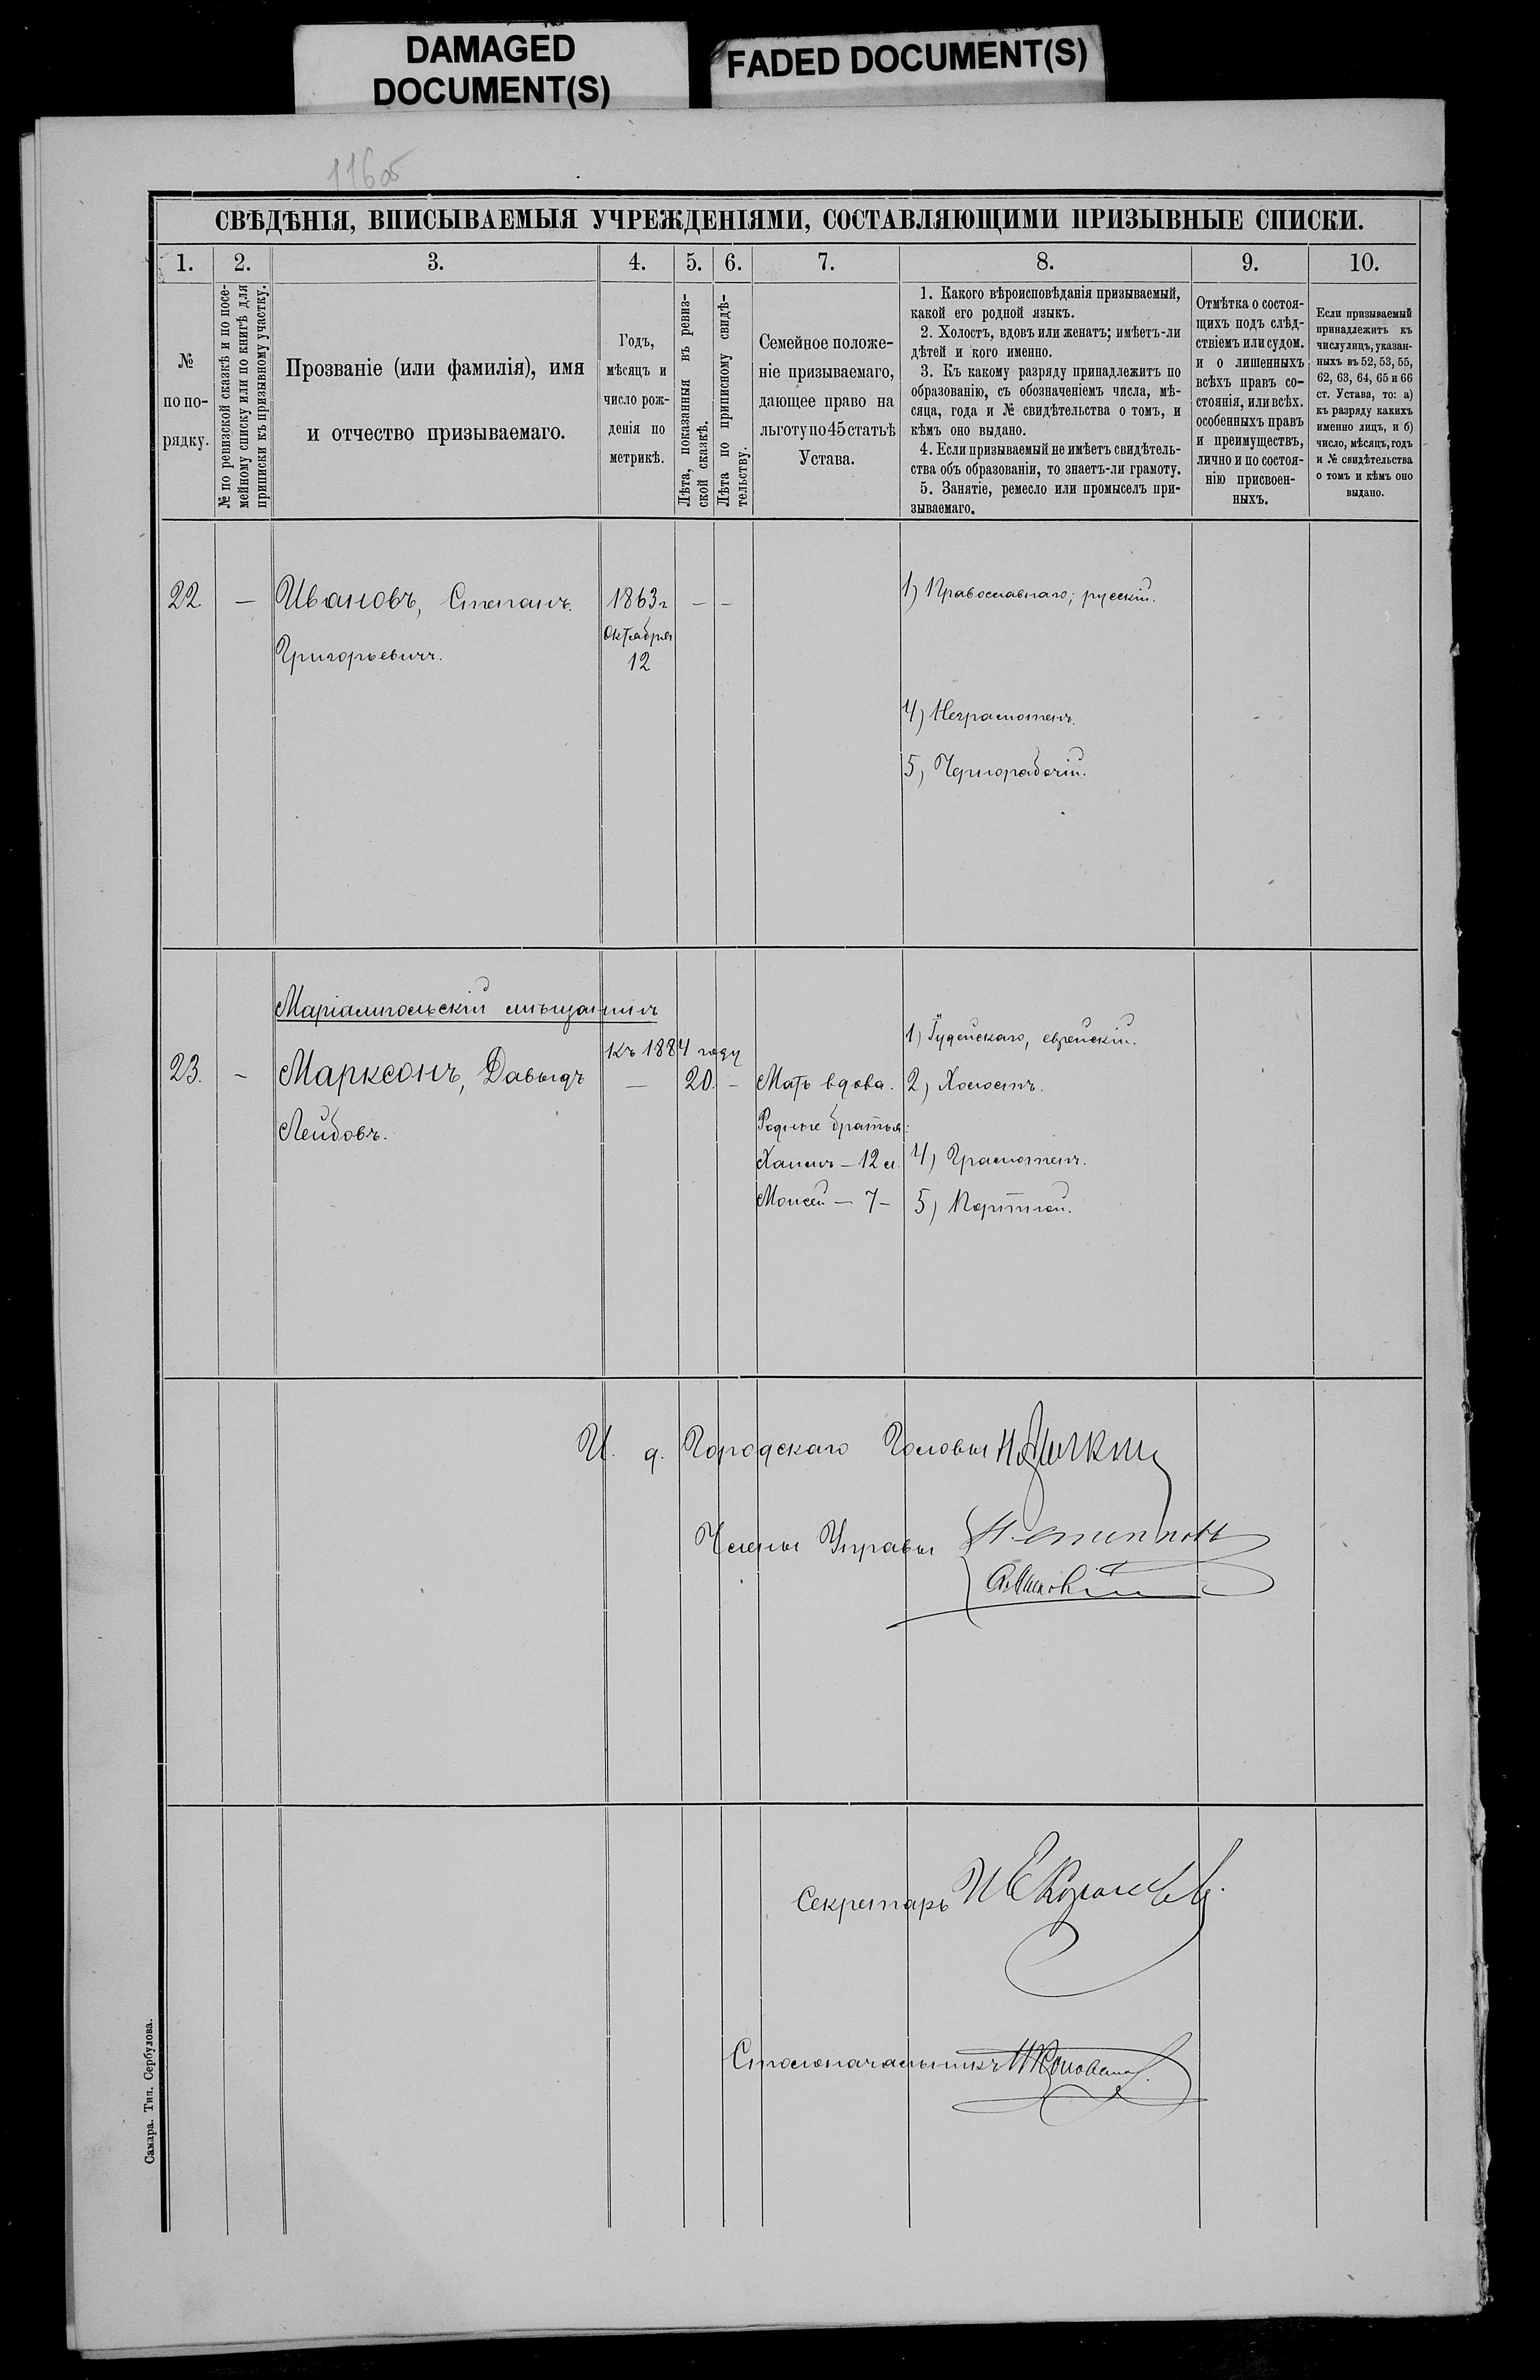 DAMAGED
DOCUMENT(S)
FADED DOCUMENT(S)
11605
СВѢДѢНІЯ, ВПИСЫВАЕМЫЯ УЧРЕЖДЕНІЯМИ, СОСТАВЛЯЮЩИМИ ПРИЗЫВНЫЕ СПИСКИ.
1. 2. 3. 4. 5. 6. 7. 8. 9. 10.
№
по по-
рядку.
№ по ревизской сказкѣ и по посе-
мейному списку или по книгѣ для
приписки къ призывному участку.
Прозваніе (или фамилія), имя
и отчество призываемаго.
Годъ,
мѣсяцъ и
число рож-
денія по
метрикѣ.
Лѣта, показанныя въ ревиз-
ской сказкѣ.
Лѣта по приписному свидѣ-
тельству.
Семейное положе-
ніе призываемаго,
дающее право на
льготу по 45 статьѣ
Устава.
1. Какого вѣроисповѣданія призываемый,
какой его родной языкъ.
2. Холостъ, вдовъ или женатъ; имѣетъ-ли
дѣтей и кого именно.
3. Къ какому разряду принадлежитъ по
образованію, съ обозначеніемъ числа, мѣ-
сяца, года и № свидѣтельства о томъ, и
кѣмъ оно выдано.
4. Если призываемый не имѣетъ свидѣтель-
ства объ образованіи, то знаетъ-ли грамоту.
5. Занятіе, ремесло или промыселъ при-
зываемаго.
Отмѣтка о состоя-
щихъ подъ слѣд-
ствіемъ или судом.
и о лишенныхъ
всѣхъ правъ со-
стоянія, или всѣх.
особенныхъ правъ
и преимуществъ,
лично и по состоя-
нію присвоен-
ныхъ.
Если призываемый
принадлежитъ къ
числу лицъ, указан-
ныхъ въ 52, 53, 55,
62, 63, 64, 65 и 66
ст. Устава, то: а)
къ разряду какихъ
именно лицъ, и б)
число, мѣсяцъ, годъ
и № свидѣтельства
о томъ и кѣмъ оно
выдано.
22 — Ивановъ, Степанъ 1863 г — — 1) Православнаго; русскій.
Октября
Григорьевичъ. 12
4) Неграмотенъ.
5) Чернорабочій.
Маріампольскій мѣщанинъ
къ 1884 году 1) Іудейскаго, еврейскій.
23. — Марксонъ, Давыдъ — 20. — Мать вдова. 2) Холостъ.
Лейбовъ. Родные братья:
Хаимъ — 12 л. 4) Грамотенъ.
Моисей — 7 — 5) Портной.
И. д. Городскаго Головы
Члены Управы
Секретарь
Столоначальникъ
Самара. Тип. Сербулова.